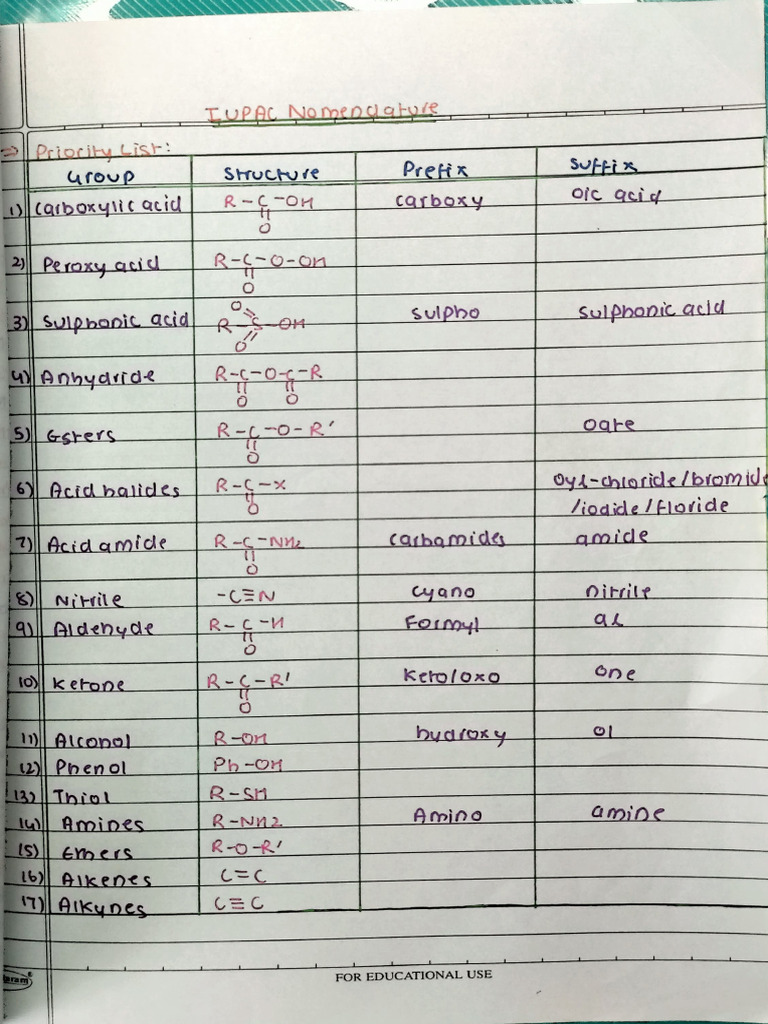 IUPAC Nomenclature
⇒ Priority List:
Group Structure Prefix Suffix
1) Carboxylic acid R-C-OH carboxy oic acid
||
O
2) Peroxy acid R-C-O-OH
||
O
3) Sulphonic acid O R-S-OH O sulpho sulphonic acid
4) Anhydride R-C-O-C-R
|| ||
O O
5) Esters R-C-O-R' oate
||
O
6) Acid halides R-C-x oyl-chloride/bromide
|| /iodide/floride
O
7) Acid amide R-C-NH2 carbamides amide
||
O
8) Nitrile -C≡N cyano nitrile
9) Aldehyde R-C-H Formyl al
||
O
10) Ketone R-C-R' Keto/oxo one
||
O
11) Alcohol R-OH hydroxy ol
12) Phenol Ph-OH
13) Thiol R-SH
14) Amines R-NH2 Amino amine
15) Ethers R-O-R'
16) Alkenes C=C
17) Alkynes C≡C
FOR EDUCATIONAL USE